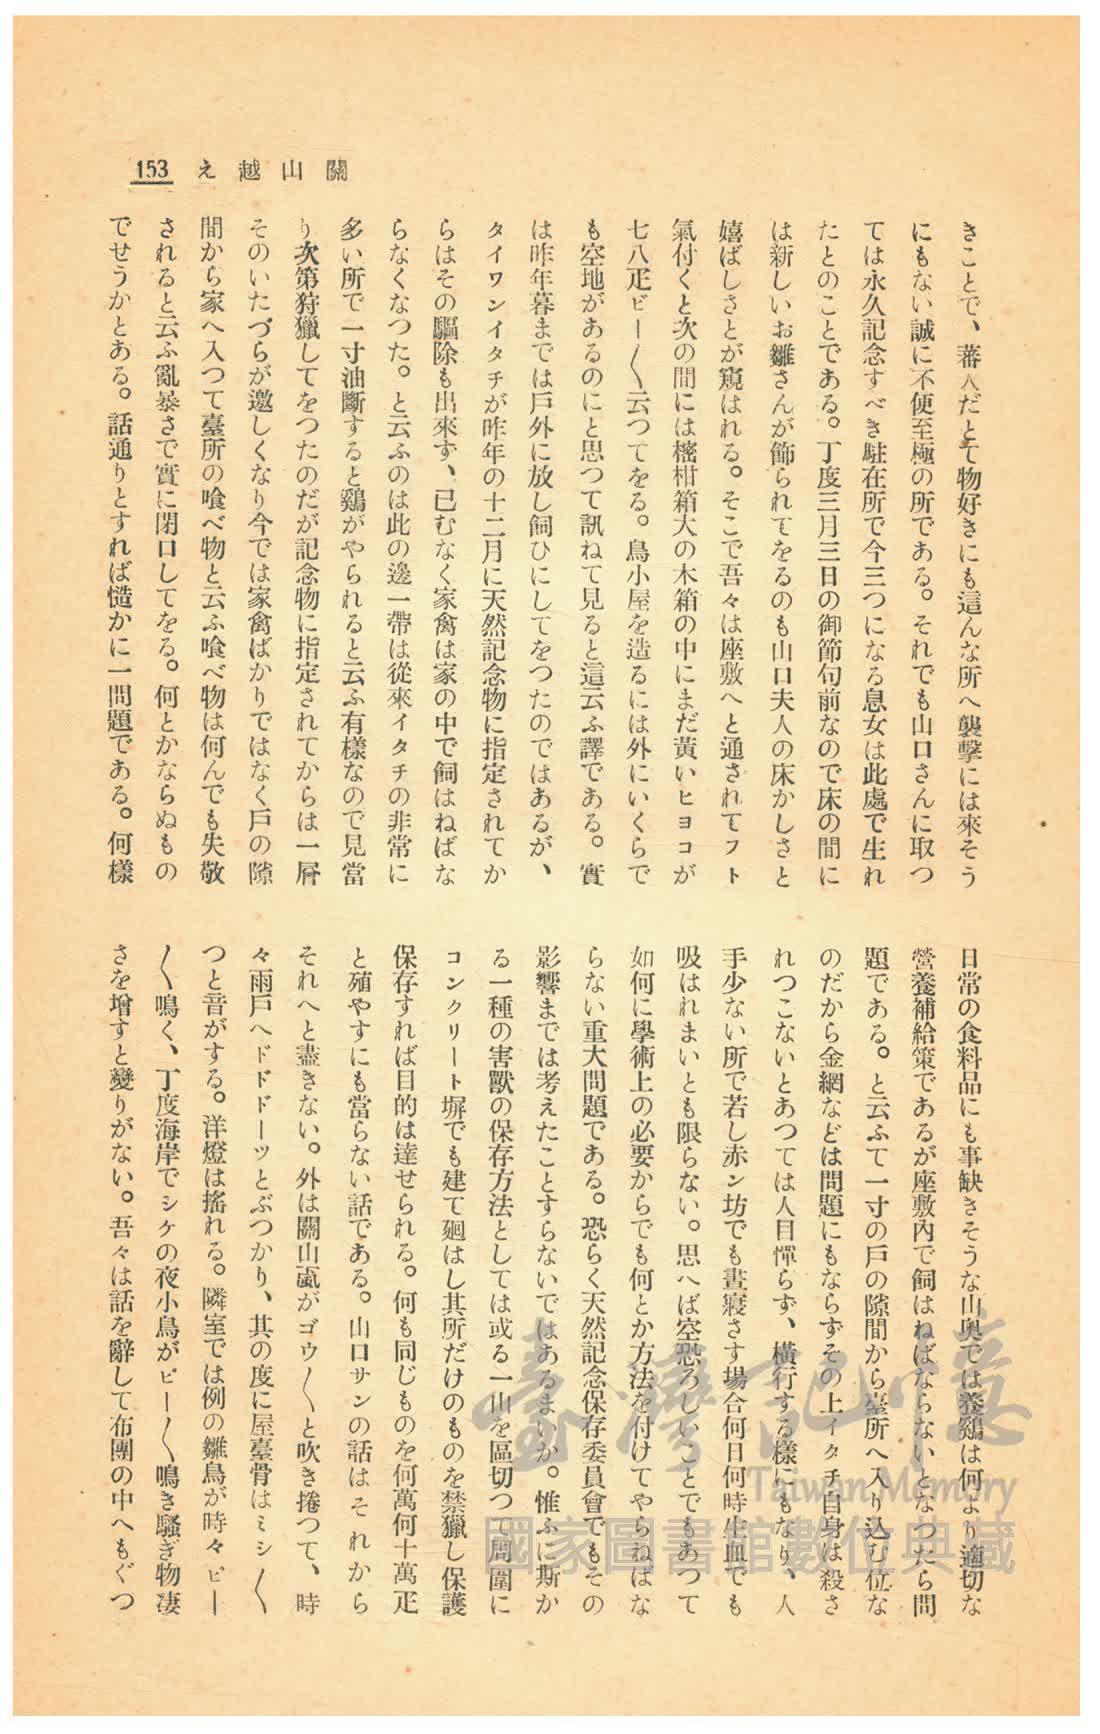 關山越え
153
きことで、蕃人だとて物好きにも這んな所へ襲擊には來そう
にもない誠に不便至極の所である。それでも山口さんに取つ
ては永久記念すべき駐在所で今三つになる息女は此處で生れ
たとのことである。丁度三月三日の御節句前なので床の間に
は新しいお雛さんが飾られてをるのも山口夫人の床かしさと
嬉ばしさとが窺はれる。そこで吾々は座敷へと通されてフト
氣付くと次の間には蜜柑箱大の木箱の中にまだ黃いヒヨコが
七八疋ピー〱云つてをる。鳥小屋を造るには外にいくらで
も空地があるのにと思つて訊ねて見ると這云ふ譯である。實
は昨年暮までは戶外に放し飼ひにしてをつたのではあるが、
タイワンイタチが昨年の十二月に天然記念物に指定されてか
らはその驅除も出來ず、已むなく家禽は家の中で飼はねばな
らなくなつた。と云ふのは此の邊一帶は從來イタチの非常に
多い所で一寸油斷すると鷄がやられると云ふ有樣なので見當
り次第狩獵してをつたのだが記念物に指定されてからは一層
そのいたづらが邀しくなり今では家禽ばかりではなく戶の隙
間から家へ入つて臺所の喰べ物と云ふ喰べ物は何んでも失敬
されると云ふ亂暴さで實に閉口してをる。何とかならぬもの
でせうかとある。話通りとすれば慥かに一問題である。何樣
日常の食料品にも事缺きそうな山奧では養鷄は何より適切な
營養補給策であるが座敷內で飼はねばならないとなつたら問
題である。と云ふて一寸の戶の隙間から臺所へ入り込む位な
のだから金網などは問題にもならずその上イタチ自身は殺さ
れつこないとあつては人目憚らず、橫行する樣にもなり、人
手少ない所で若し赤ン坊でも晝寢さす場合何日何時生血でも
吸はれまいとも限らない。思へば空恐ろしいことでもあつて
如何に學術上の必要からでも何とか方法を付けてやらねばな
らない重大問題である。恐らく天然記念保存委員會でもその
影響までは考えたことすらないではあるまいか。惟ふに斯か
る一種の害獸の保存方法としては或る一山を區切つて周圍に
コンクリート塀でも建て廻はし其所だけのものを禁獵し保護
保存すれば目的は達せられる。何も同じものを何萬何十萬疋
と殖やすにも當らない話である。山口サンの話はそれから
それへと盡きない。外は關山颪がゴウ〱と吹き捲つて、時
々雨戶へドドドーツとぶつかり、其の度に屋臺骨はミシ〱
つと音がする。洋燈は搖れる。隣室では例の雛鳥が時々ピー
〱鳴く、丁度海岸でシケの夜小鳥がピー〱鳴き騷ぎ物凄
さを增すと變りがない。吾々は話を辭して布團の中へもぐつ
臺灣記憶
Taiwan Memory
國家圖書館數位典藏